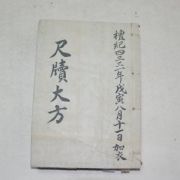 檀紀四三三一年戊寅八月十一日 加衣
尺牘大方